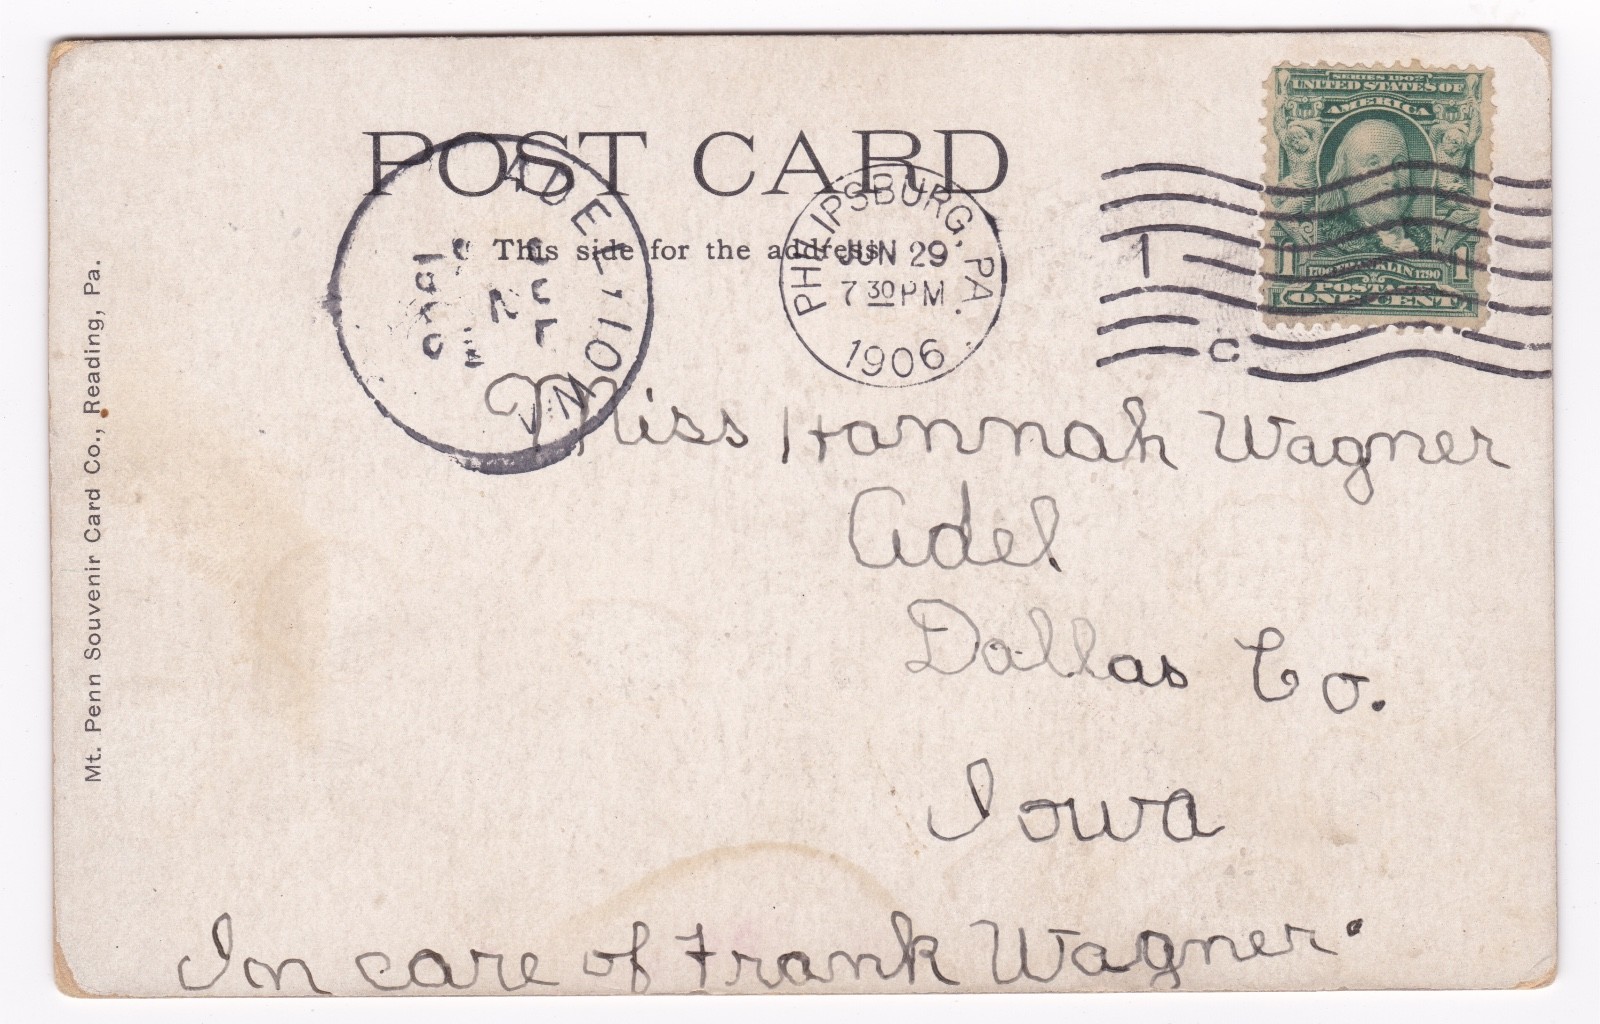 POST CARD
This side for the address.
SERIES 1902
UNITED STATES OF
AMERICA
1 1
1706 FRANKLIN 1790
POSTAGE
ONE CENT
PHILIPSBURG, PA.
JUN 29
7 30 PM
1906
1
C
ADEL, IOWA
JUL
2
190
Miss Hannah Wagner
Adel
Dallas Co.
Iowa
In care of Frank Wagner.
Mt. Penn Souvenir Card Co., Reading, Pa.